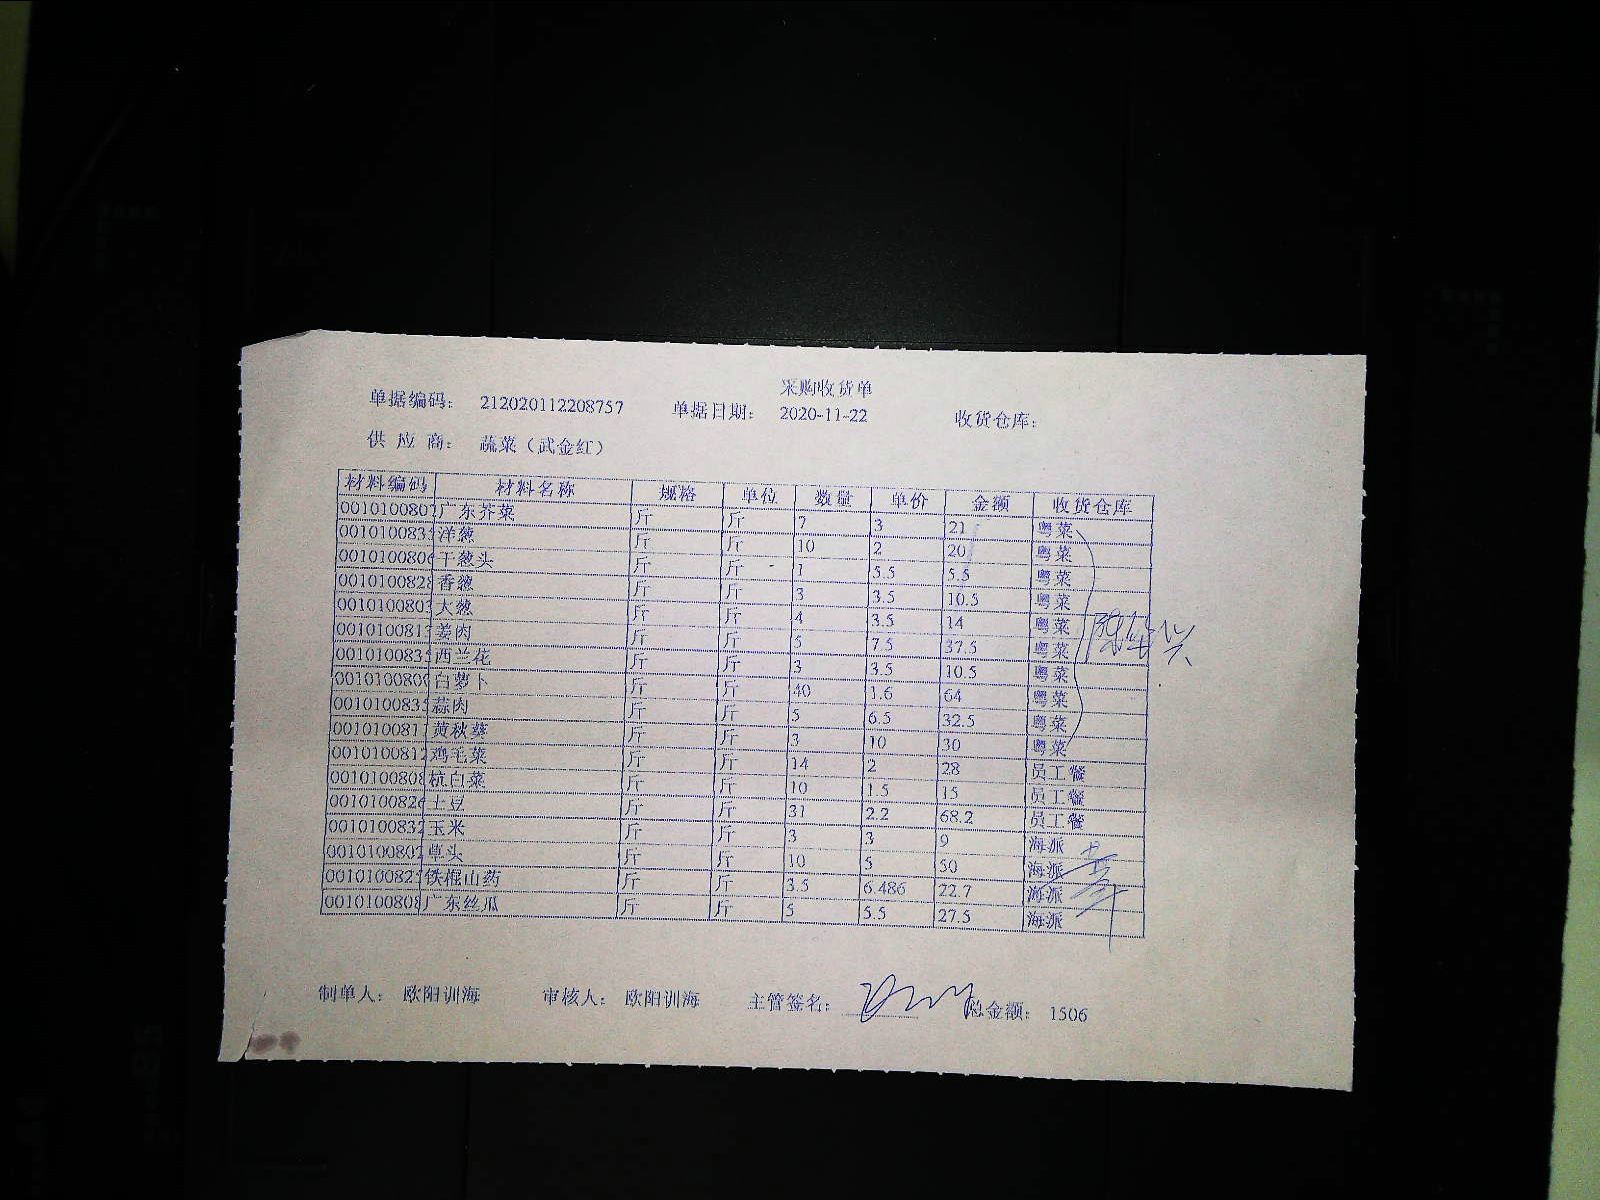 采购收货单
单据编码： 212020112208757 单据日期： 2020-11-22 收货仓库：
供 应 商： 蔬菜（武金红）
材料编码 材料名称 规格 单位 数量 单价 金额 收货仓库
0010100807 广东芥菜 斤 斤 7 3 21 粤菜
001010083 洋葱 斤 斤 10 2 20 粤菜
0010100806 干葱头 斤 斤 1 5.5 5.5 粤菜
0010100828 香葱 斤 斤 3 3.5 10.5 粤菜
001010080 大葱 斤 斤 4 3.5 14 粤菜
001010081 姜肉 斤 斤 5 7.5 37.5 粤菜
001010083 西兰花 斤 斤 3 3.5 10.5 粤菜
001010080 白萝卜 斤 斤 40 1.6 64 粤菜
001010083 蒜肉 斤 斤 5 6.5 32.5 粤菜
001010081 黄秋葵 斤 斤 3 10 30 粤菜
001010081 鸡毛菜 斤 斤 14 2 28 员工餐
0010100808 杭白菜 斤 斤 10 1.5 15 员工餐
001010082 土豆 斤 斤 31 2.2 68.2 员工餐
001010083 玉米 斤 斤 3 3 9 海派
001010080 草头 斤 斤 10 5 50 海派
001010082 铁棍山药 斤 斤 3.5 6.486 22.7 海派
0010100808 广东丝瓜 斤 斤 5 5.5 27.5 海派
制单人： 欧阳训海 审核人： 欧阳训海 主管签名： 总金额： 1506